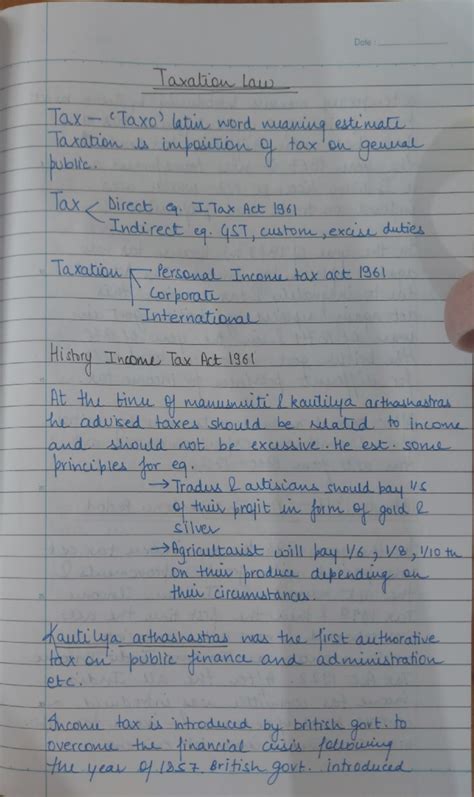 Date :
Taxation Law
Tax – 'Taxo' latin word meaning estimate
Taxation is imposition of tax on general
public.
Tax Direct eg. I Tax Act 1961
Indirect eg. GST, custom, excise duties
Taxation Personal Income tax act 1961
Corporate
International
History Income Tax Act 1961
At the time of manusmriti & kautilya arthashastras
he advised taxes should be related to income
and should not be excessive. He est. some
principles for eg.
→ Traders & artisians should pay 1/5
of their profit in form of gold &
silver
→ Agricultarist will pay 1/6, 1/8, 1/10 th
on their produce depending on
their circumstances.
Kautilya arthashastras was the first authorative
tax on public finance and administration
etc.
Income tax is introduced by british govt. to
overcome the financial crisis following
the year of 1857. British govt. introduced